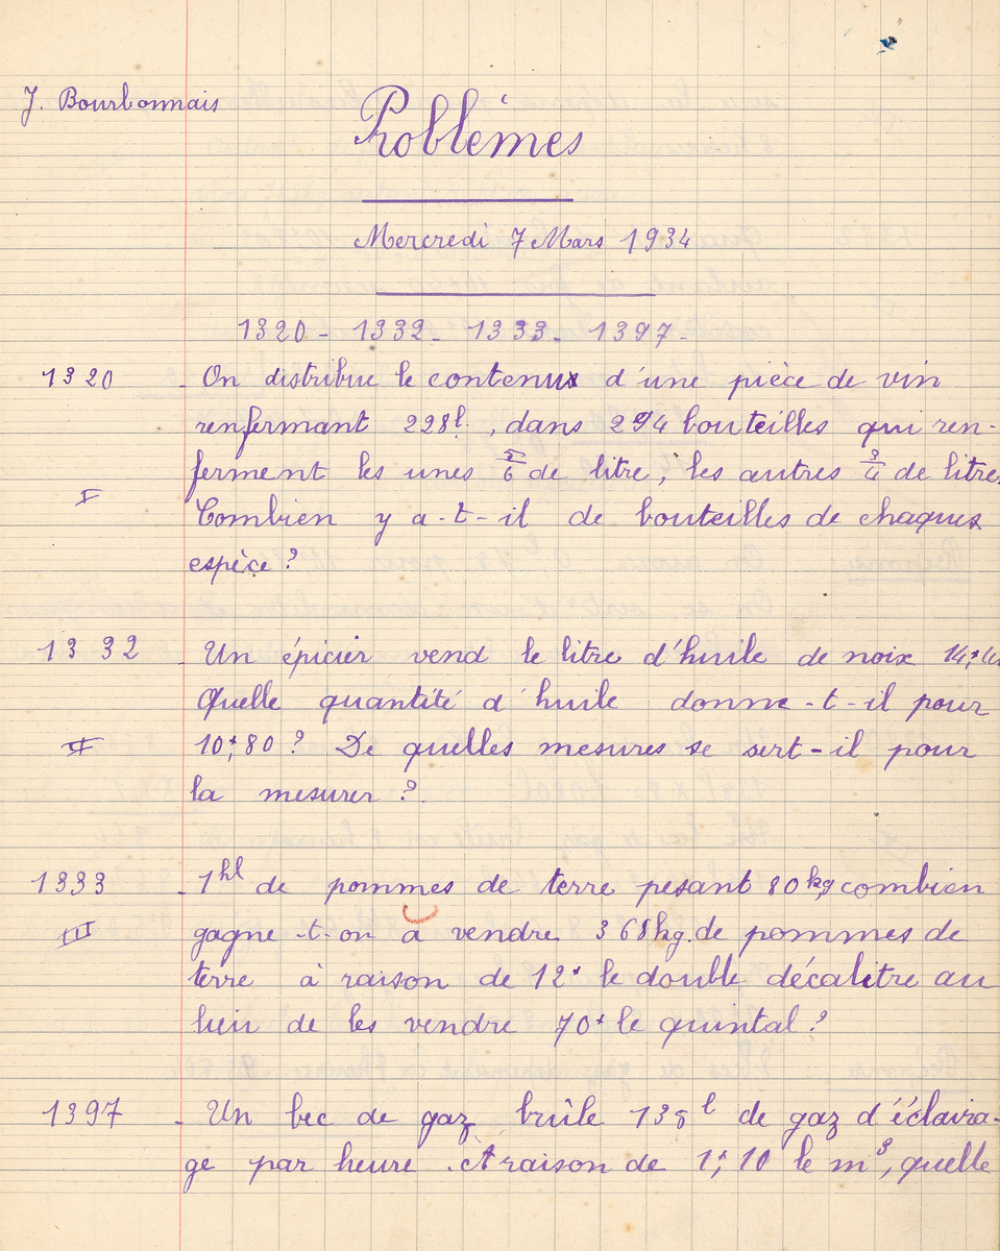 J. Bourbonnais
Problèmes
Mercredi 7 Mars 1934
1320 - 1332 - 1333 - 1397 -
1320 - On distribue le contenux d'une pièce de vin
renfermant 228l, dans 294 bouteilles qui ren-
ferment les unes 5/6 de litre, les autres 3/4 de litre.
I
Combien y a-t-il de bouteilles de chaques
espèce ?
1332 - Un épicier vend le litre d'huile de noix
Quelle quantité d'huile donne-t-il pour
II
10f,80 ? De quelles mesures se sert-il pour
la mesurer ?
1333 - 1hl de pommes de terre pesant 80kg combien
III
gagne-t-on à vendre 368kg. de pommes de
terre à raison de 12f le double décalitre au
lieu de les vendre 70f le quintal ?
1397 - Un bec de gaz brûle 135l de gaz d'éclaira-
ge par heure. A raison de 1f,10 le m3, quelle